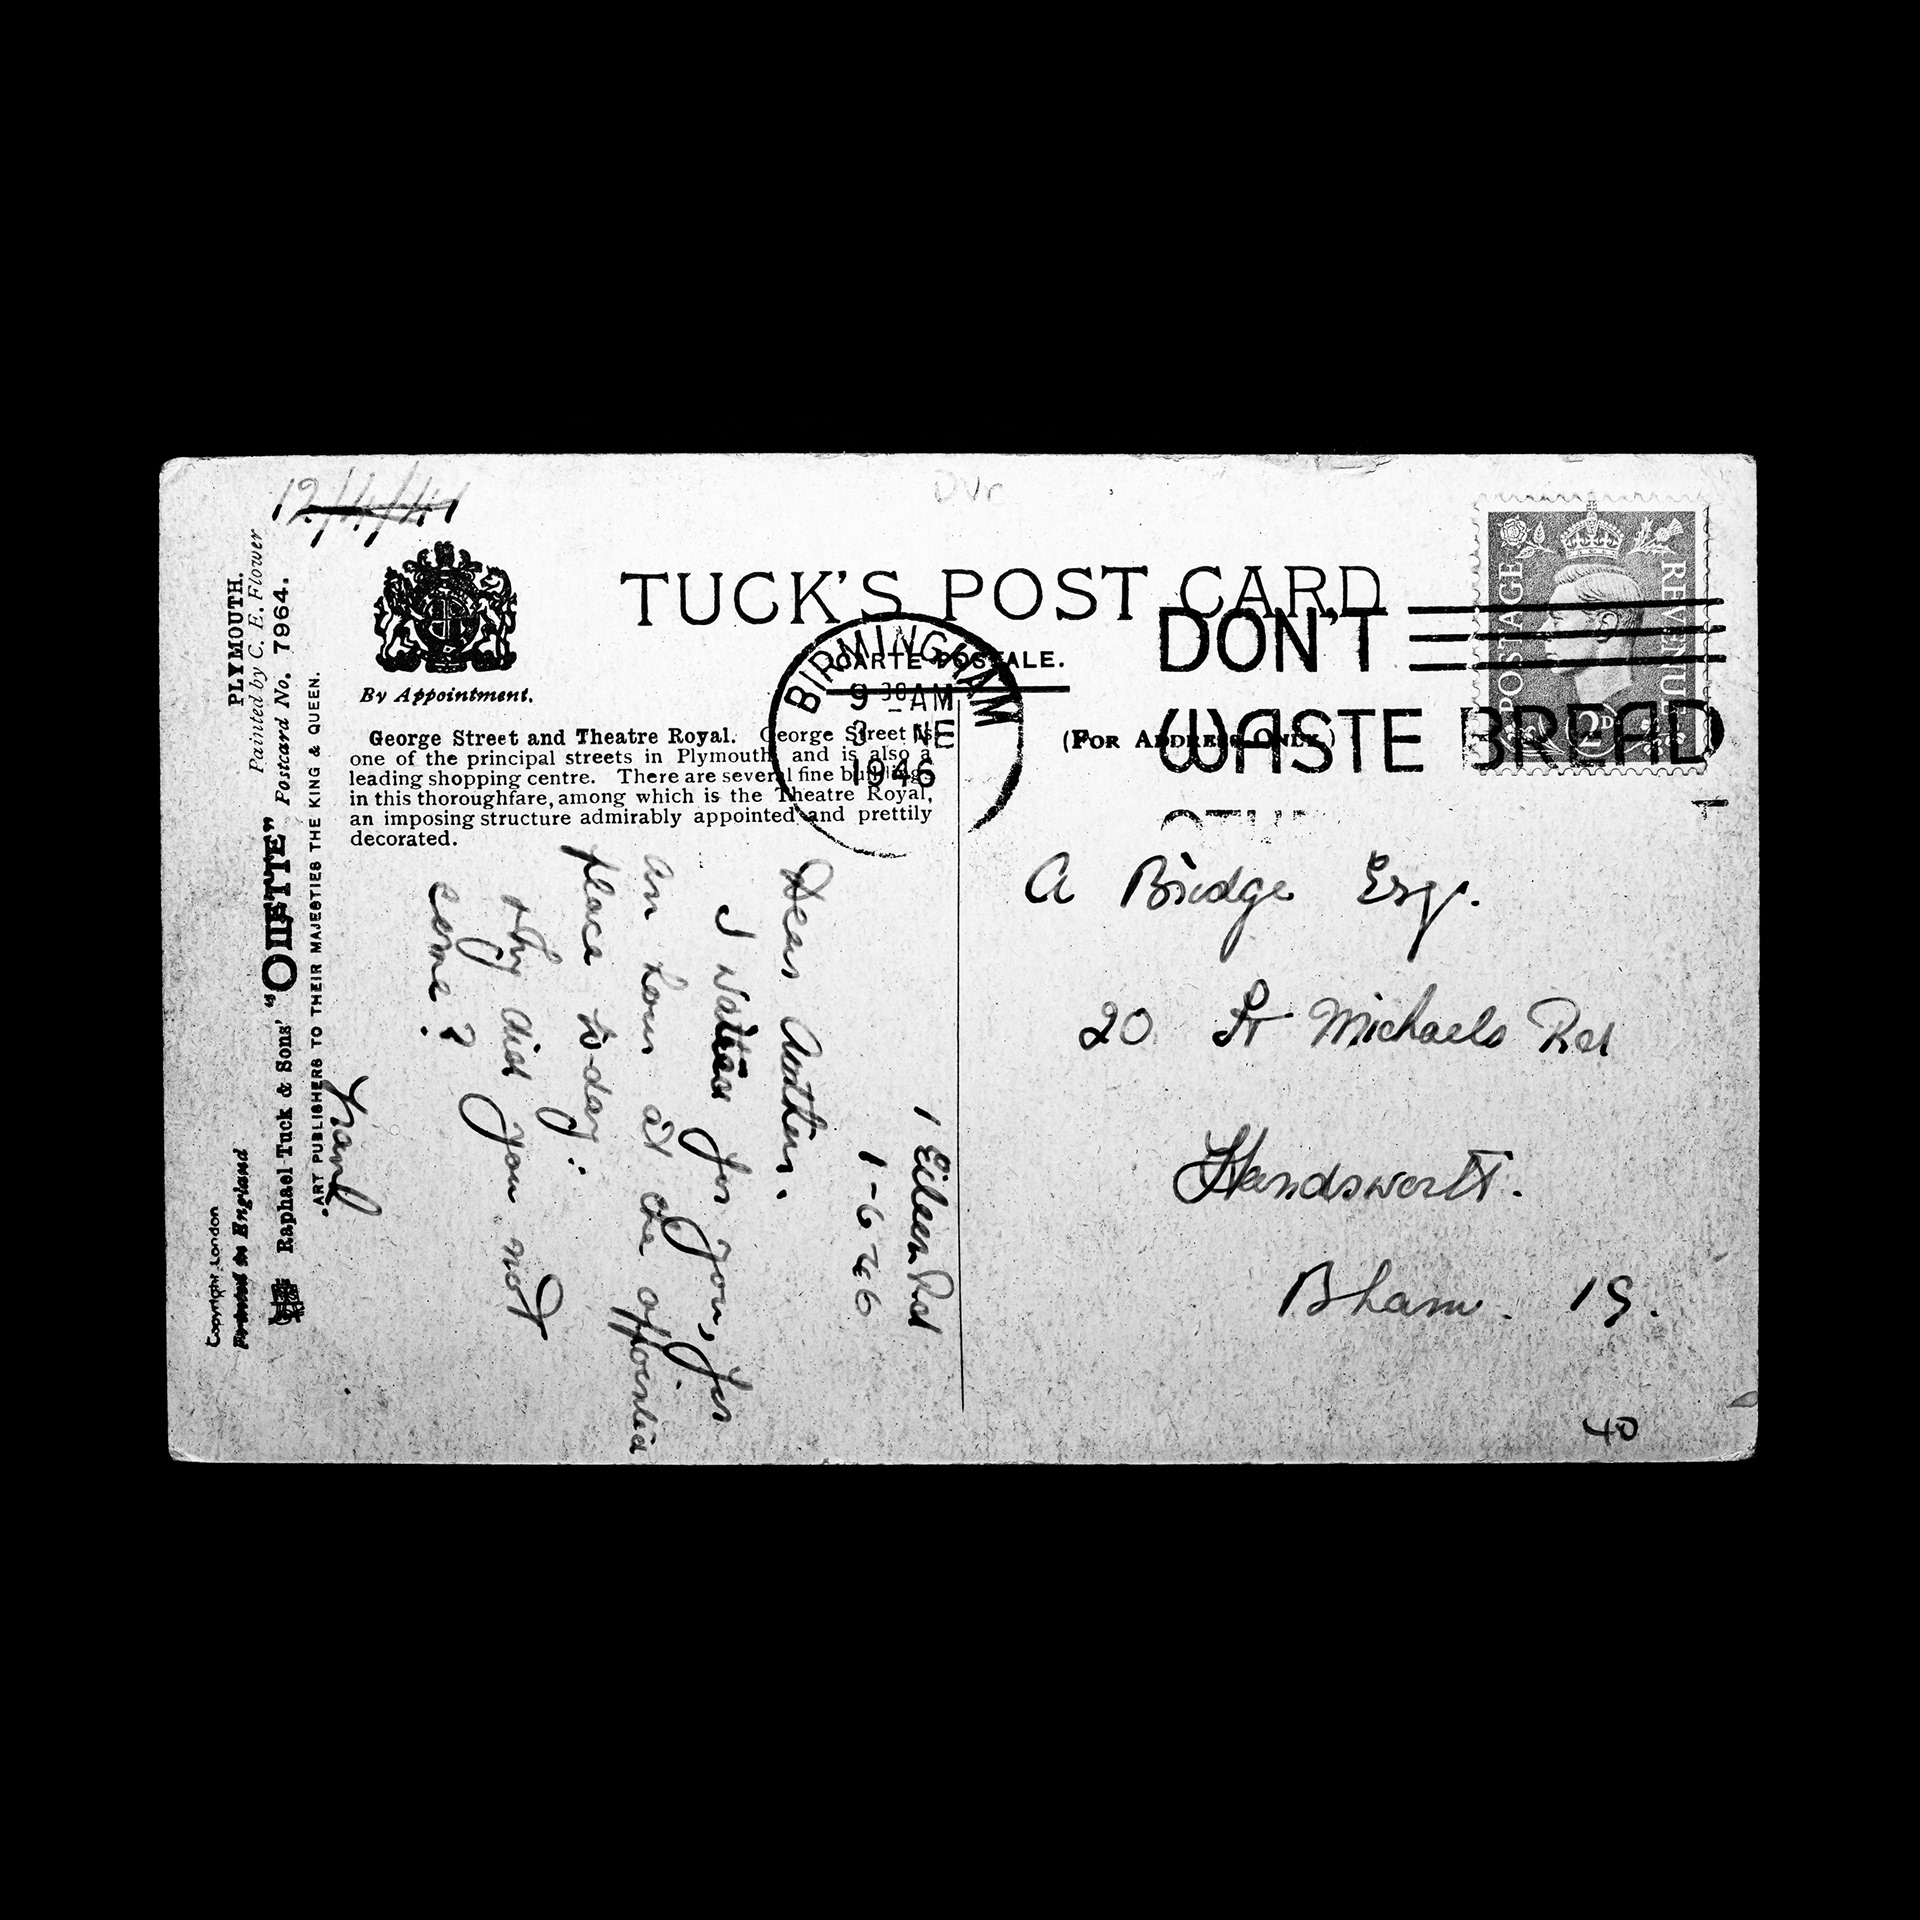 12/4/41
DVr
TUCK'S POST CARD
CARTE POSTALE.
By Appointment.
(FOR ADDRESS ONLY.)
George Street and Theatre Royal. George Street is
one of the principal streets in Plymouth, and is also a
leading shopping centre. There are several fine buildings
in this thoroughfare, among which is the Theatre Royal,
an imposing structure admirably appointed and prettily
decorated.
BIRMINGHAM
9 30 AM
3 NE
1946
DON'T
WASTE BREAD
POSTAGE REVENUE
2D
PLYMOUTH.
Painted by C. E. Flower
Postcard No. 7964.
Raphael Tuck & Sons' "OILETTE"
ART PUBLISHERS TO THEIR MAJESTIES THE KING & QUEEN.
Copyright London
Printed in England
1 Eileen Rd
1-6-46
Dear Arthur.
I waited for you, for
an hour at the appointed
place to-day;
why did you not
come?
Frank
A Bridge Esq.
20 St Michaels Rd
Handsworth.
Bham. 19.
40